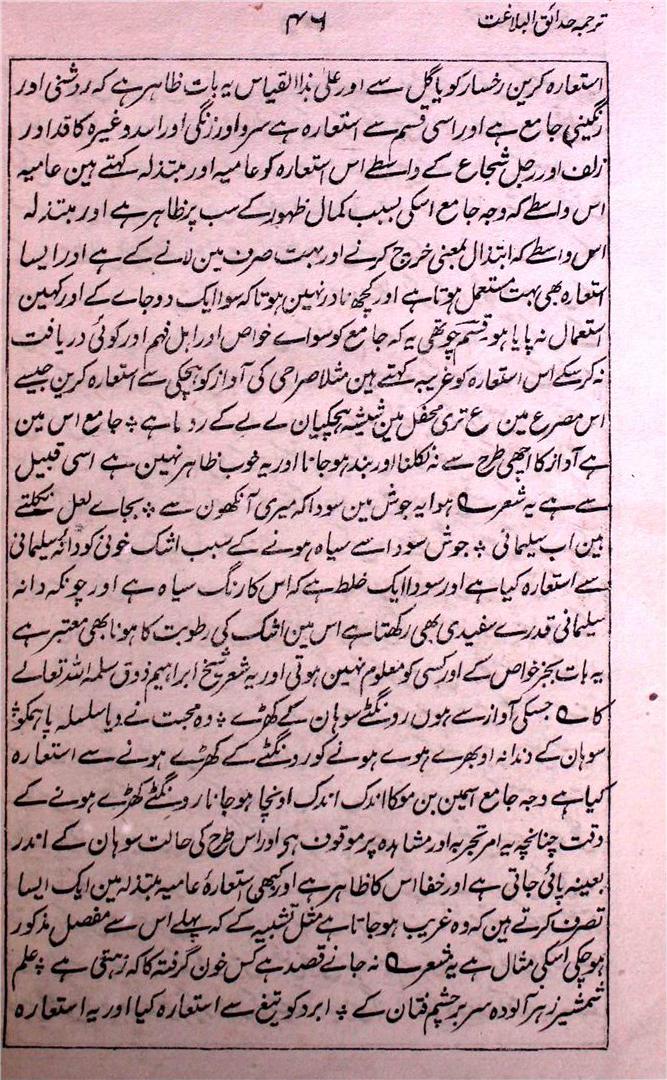 ترجمہ حدائق البلاغت ۴۶
استعارہ کرین رخسار کو یا گل سے اور علیٰ ہذا القیاس یہ بات ظاہر ہے کہ روشنی اور
رنگینی جامع ہے اور اسی قسم سے استعارہ ہے سرو اور زنگی اور اسد وغیرہ کا قد اور
زلف اور رجل شجاع کے واسطے اس استعارہ کو عامیہ اور مبتذلہ کہتے ہین عامیہ
اس واسطے کہ وجہ جامع اسکی بسبب کمال ظہور کے سب پر ظاہر ہے اور مبتذلہ
اس واسطے کہ ابتذال بمعنی خرچ کرنے اور بہت صرف مین لانے کے ہے اور ایسا
استعارہ بھی بہت مستعمل ہوتا ہے اور کچھ نادر نہین ہوتا کہ سوا ایک دو جاے کے اور کہین
استعمال نہ پایا ہو قسم چوتھی یہ کہ جامع کو سواے خواص اور اہل فہم اور کوئی دریافت
نہ کرسکے اس استعارہ کو غریبہ کہتے ہین مثلا صراحی کی آواز کو ہچکی سے استعارہ کرین جیسے
اس مصرع مین ع تری محفل مین شیشہ ہچکیان لے لے کے روتا ہے ؞ جامع اس مین
ہے آواز کا اچھی طرح سے نہ نکلنا اور بند ہوجانا اور یہ خوب ظاہر نہین ہے اسی قبیل
سے ہے یہ شعر ؎ ہوا یہ جوش مین سودا کہ میری آنکھون سے ؞ بجاے لعل نکلتے
ہین اب سلیمانی ؞ جوش سودا سے سیاہ ہونے کے سبب اشک خونی کو دانۂ سلیمانی
سے استعارہ کیا ہے اور سودا ایک خلط ہے کہ اس کا رنگ سیاہ ہے اور چونکہ دانہ
سلیمانی قدرے سفیدی بھی رکھتا ہے اس مین اشک کی رطوبت کا ہونا بھی معتبر ہے
یہ بات بجز خواص کے اور کسی کو معلوم نہین ہوتی اور یہ شعر شیخ ابراہیم ذوق سلمہ اللہ تعالے
کا ؎ جسکی آواز سے ہوں رونگٹے سوہان کے کھڑے ؞ وہ محبت نے دیا سلسلہ پا ہمکو ؞
سوہان کے دندانہ اوبھرے ہوے ہونے کو رونگٹے کے کھڑے ہونے سے استعارہ
کیا ہے وجہ جامع آسمین بن مو کا اندک اندک اونچا ہوجانا رونگٹے کھڑے ہونے کے
وقت چنانچہ یہ امر تجربہ اور مشاہدہ پر موقوف ہو اور اس طرح کی حالت سوہان کے اندر
بعینہ پائی جاتی ہے اور خفا اس کا ظاہر ہے اور کبھی استعارۂ عامیہ مبتذلہ مین ایک ایسا
تصرف کرتے ہین کہ وہ غریب ہوجاتا ہے مثل تشبیہ کے کہ پہلے اس سے مفصل مذکور
ہوچکی اسکی مثال ہے یہ شعر ؎ نہ جانے قصد ہے کس خون گرفتہ کا کہ رہتی ہے ؞ علم
شمشیر زہر آلودہ سر بر چشم فتان کے ؞ ابرو کو تیغ سے استعارہ کیا اور یہ استعارہ